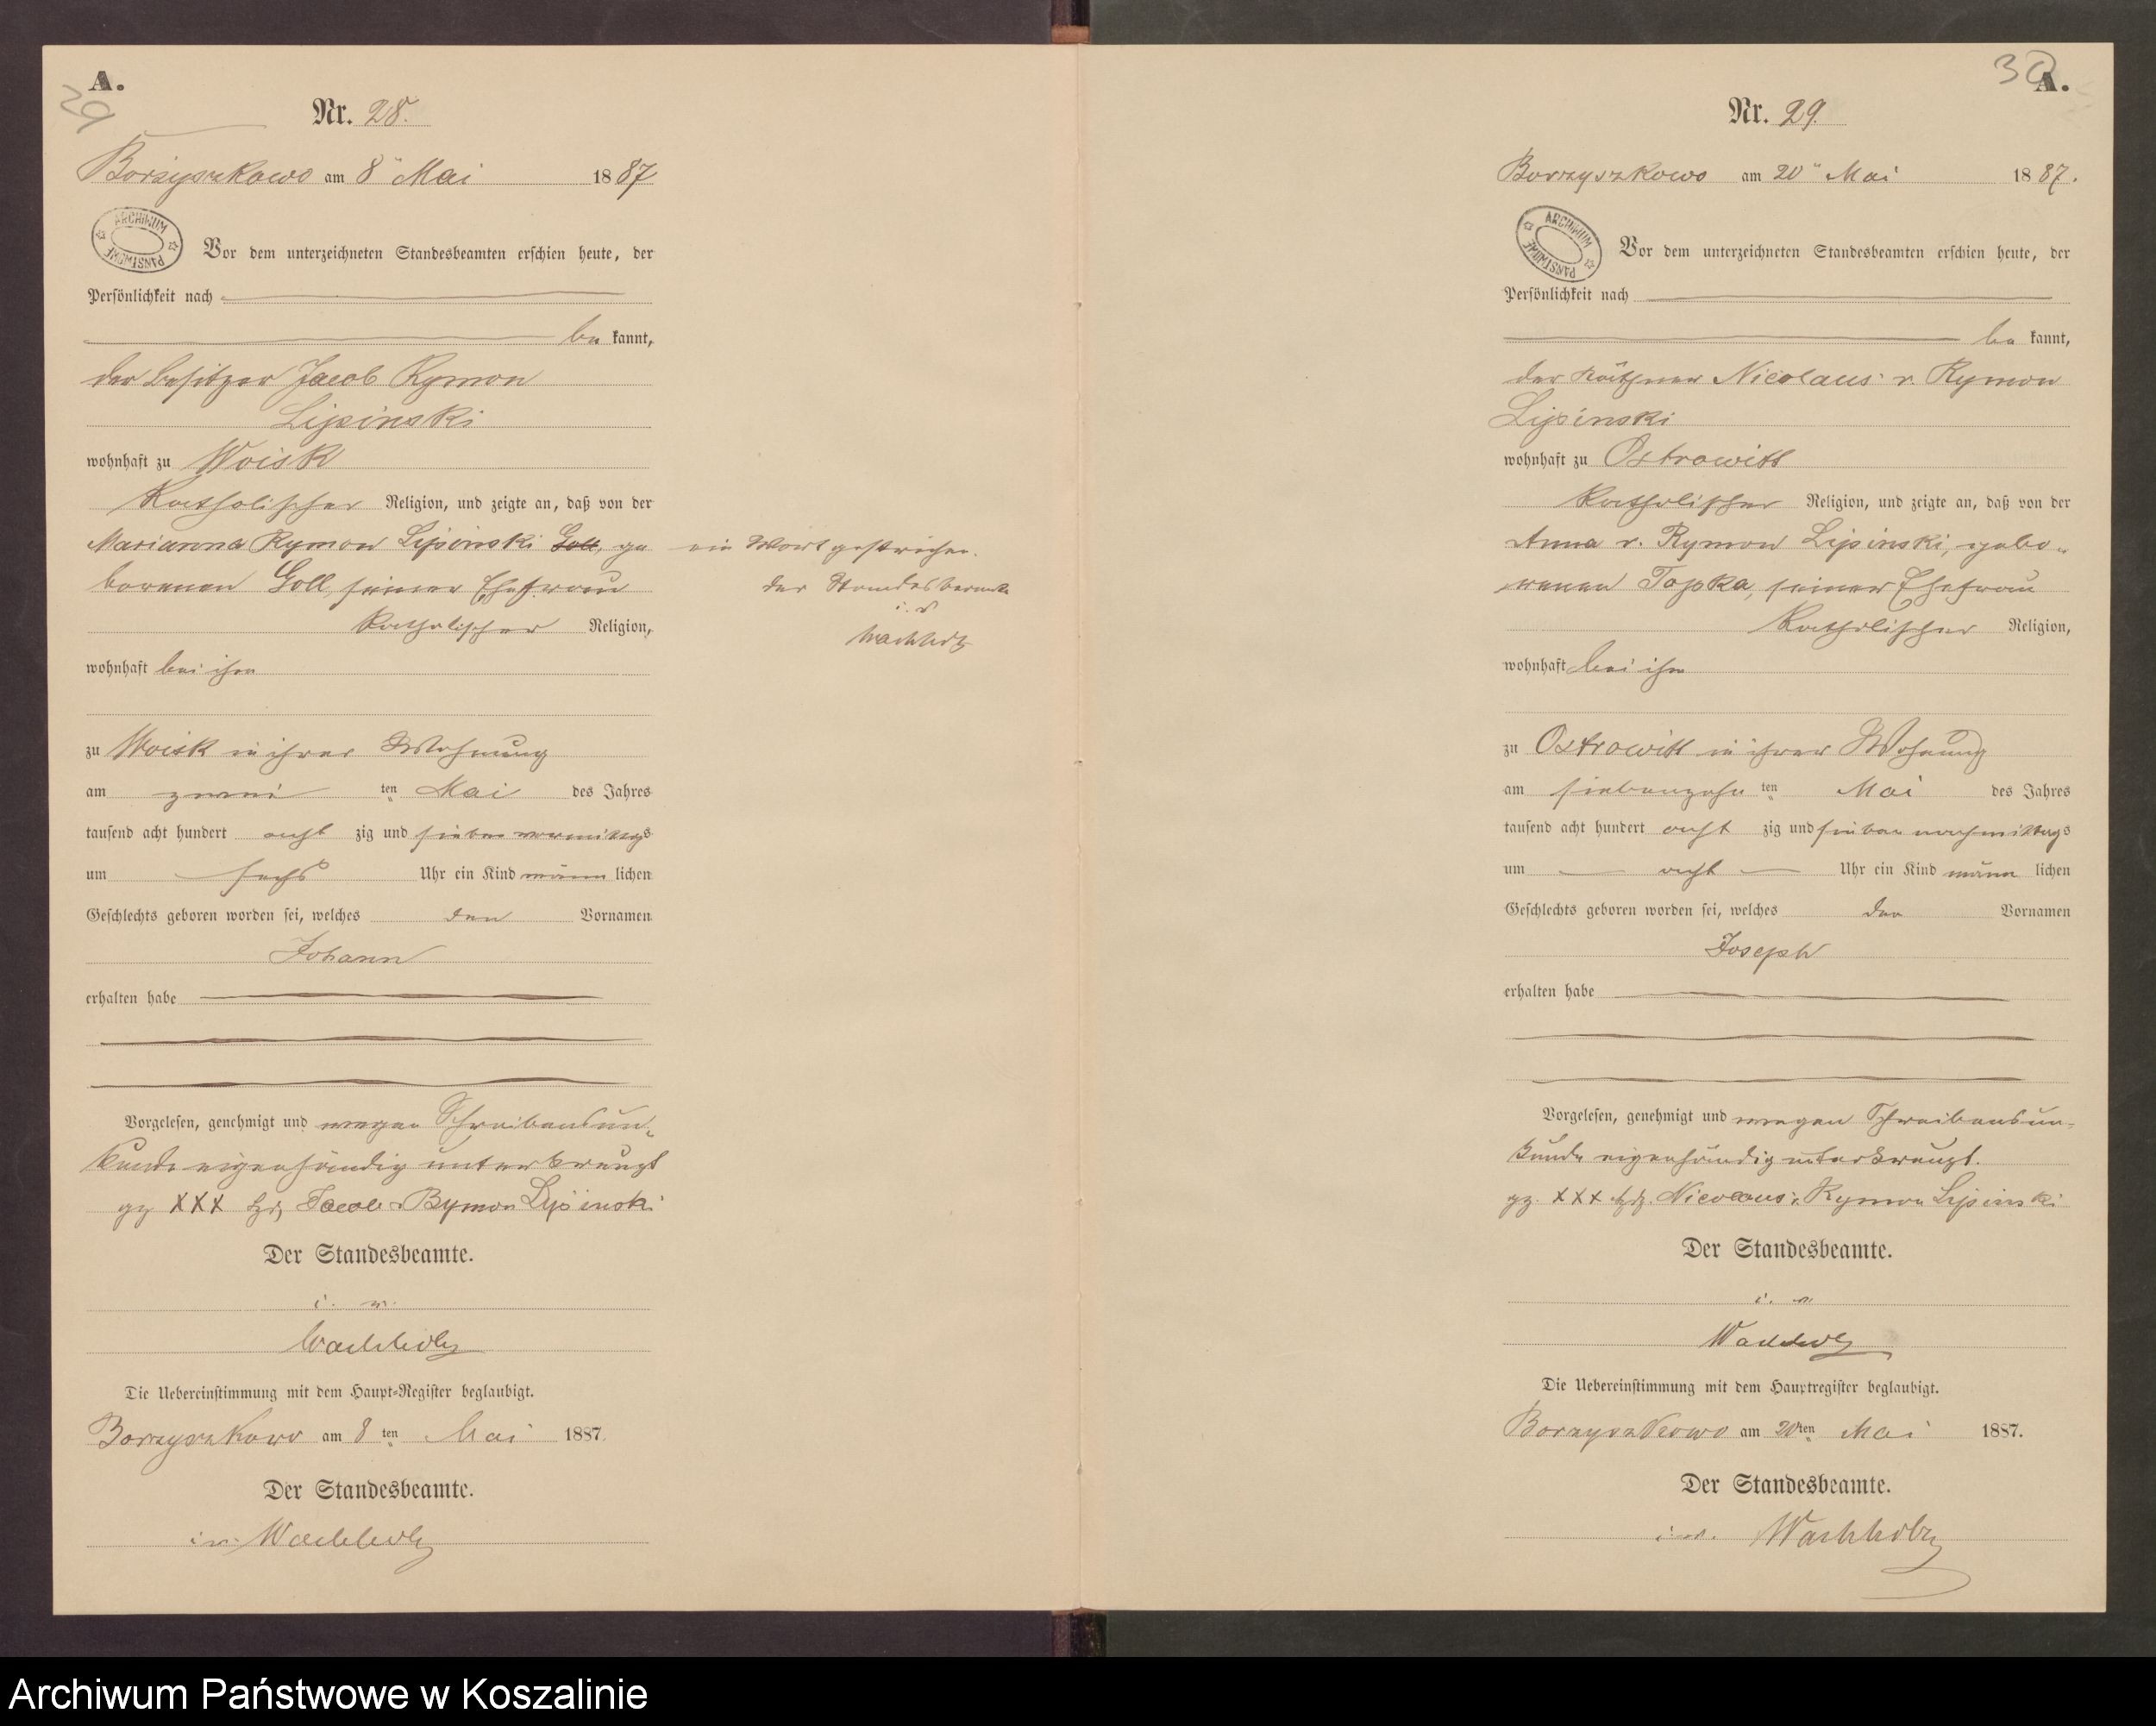 A.
29
Nr. 28.
Borzyszkowo am 8ten Mai 1887
ARCHIWUM PAŃSTWOWE
Vor dem unterzeichneten Standesbeamten erschien heute, der
Persönlichkeit nach
be kannt,
der Besitzer Jacob Rymon
Lipinski
wohnhaft zu Woisk
katholischer Religion, und zeigte an, daß von der
Marianna Rymon Lipinski Goll, ge
borenen Goll, seiner Ehefrau
katholischer Religion,
wohnhaft bei ihm
zu Woisk in ihrer Wohnung
am zwei ten Mai des Jahres
tausend acht hundert acht zig und sieben vormittags
um sechs Uhr ein Kind männ lichen
Geschlechts geboren worden sei, welches den Vornamen
Johann
erhalten habe
Vorgelesen, genehmigt und wegen Schreibensun-
kunde eigenhändig unterkreuzt
gz XXX Hdz Jacob v Rymon Lipinski
Der Standesbeamte.
i. v.
Wachholz
Die Uebereinstimmung mit dem Haupt-Register beglaubigt.
Borzyszkowo am 8 ten Mai 1887.
Der Standesbeamte.
i v. Wachholz
ein Wort gestrichen.
der Standesbeamte
i. v
Wachholz
30
A.
Nr. 29.
Borzyszkowo am 20ten Mai 1887.
ARCHIWUM PAŃSTWOWE
Vor dem unterzeichneten Standesbeamten erschien heute, der
Persönlichkeit nach
be kannt,
der Käthner Nicolaus v. Rymon
Lipinski
wohnhaft zu Ostrowitt
katholischer Religion, und zeigte an, daß von der
Anna v. Rymon Lipinski, gebo-
renen Topka, seiner Ehefrau
katholischer Religion,
wohnhaft bei ihm
zu Ostrowitt in ihrer Wohnung
am siebenzehn ten Mai des Jahres
tausend acht hundert acht zig und sieben nachmittags
um acht Uhr ein Kind männ lichen
Geschlechts geboren worden sei, welches den Vornamen
Joseph
erhalten habe
Vorgelesen, genehmigt und wegen Schreibensun-
kunde eigenhändig unterkreuzt.
gz. XXX Hdz. Nicolaus v. Rymon Lipinski
Der Standesbeamte.
i. v.
Wachholz
Die Uebereinstimmung mit dem Hauptregister beglaubigt.
Borzyszkowo am 20ten Mai 1887.
Der Standesbeamte.
i. v. Wachholz
Archiwum Państwowe w Koszalinie